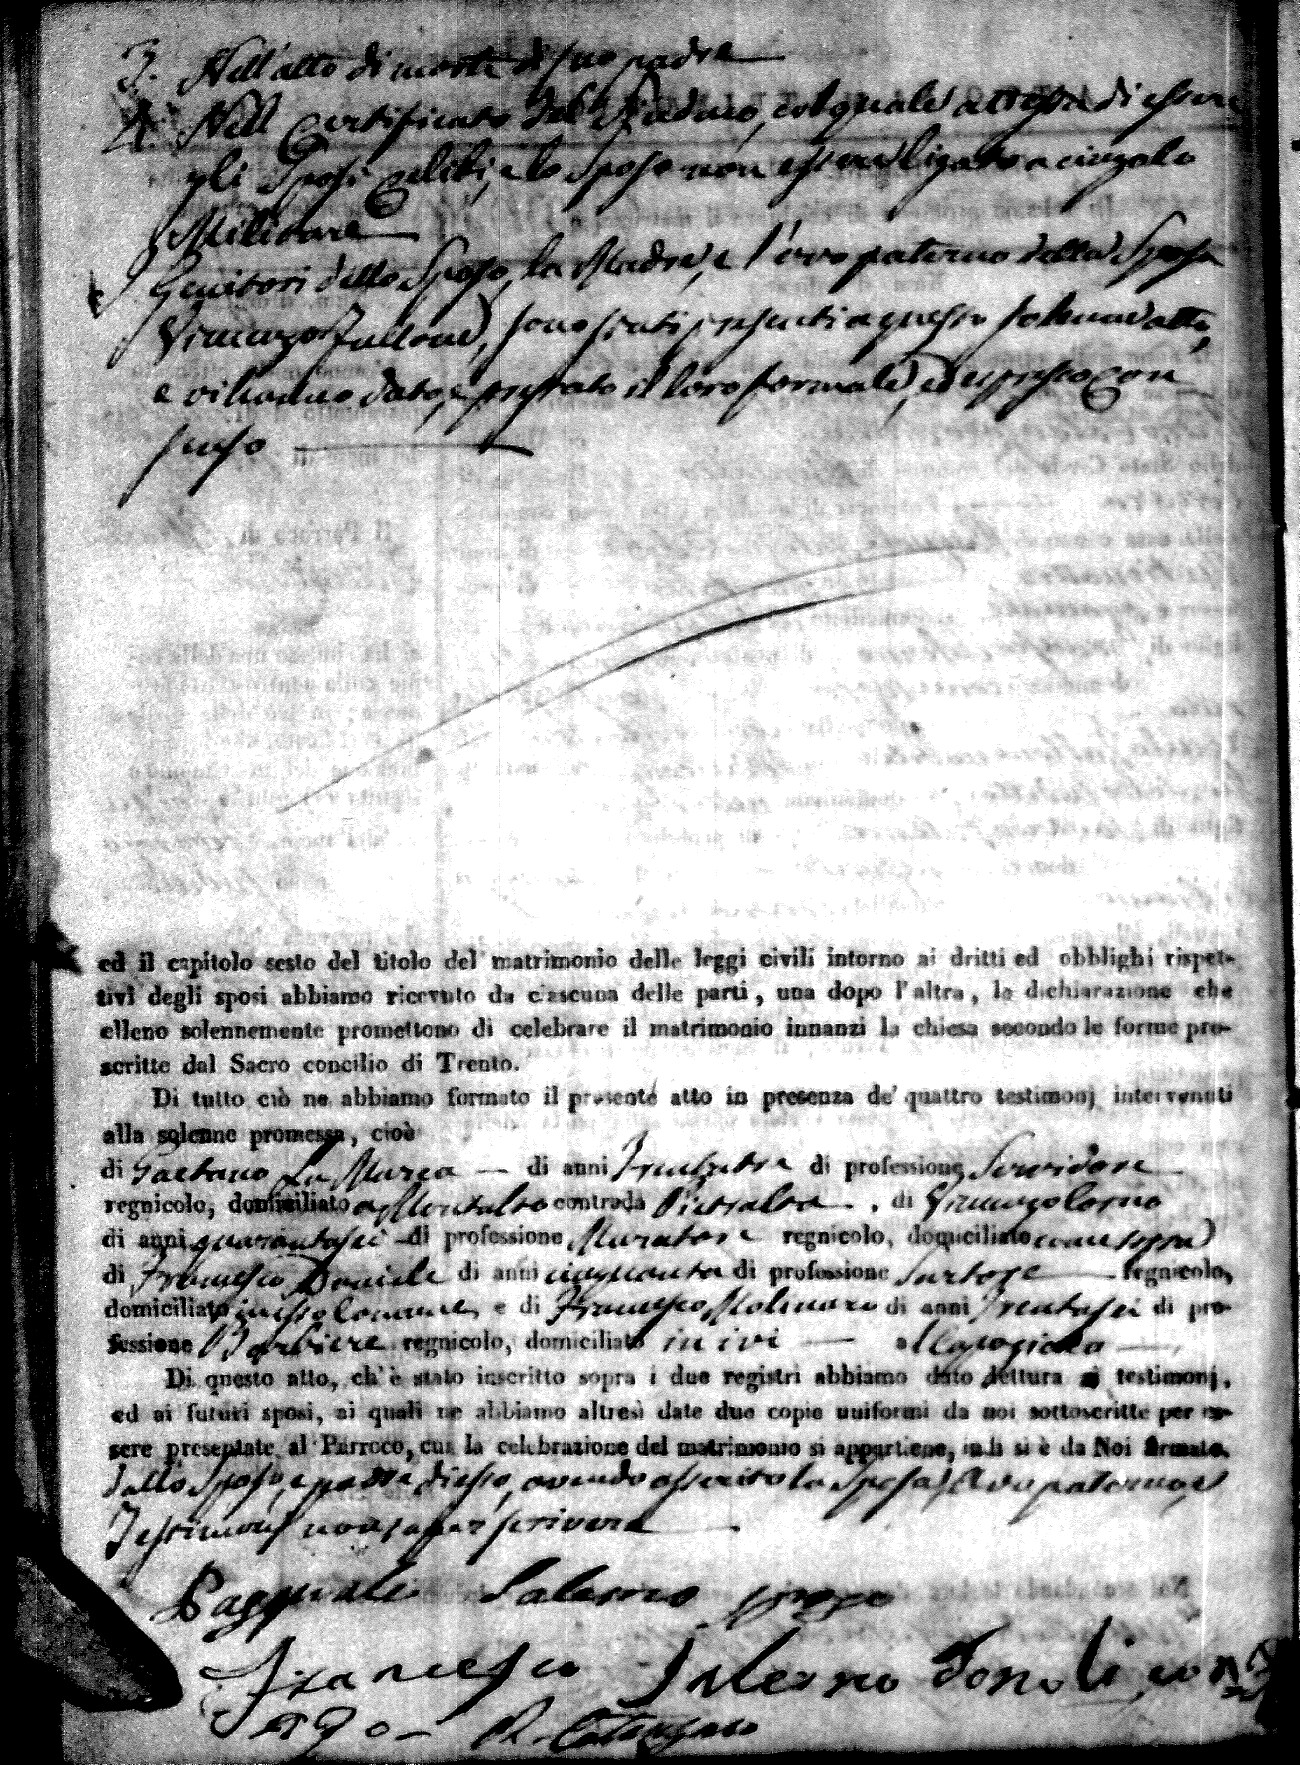 3. Nell'atto di morte di suo padre
4. Nell Certificato del Sindaco, col quale attesta di essere
gli Sposi celibi, e lo Sposo non essere ligato a cingolo
Militare
I Genitori dello Sposo, la Madre, e l'avo paterno della Sposa
Vincenzo Fullone, sono stati presenti a questo solenne atto,
e vi hanno dato, e prestato il loro formale, ed espresso con
senso
ed il capitolo sesto del titolo del matrimonio delle leggi civili intorno ai dritti ed obblighi rispet-
tivi degli sposi abbiamo ricevuto da ciascuna delle parti, una dopo l'altra, la dichiarazione che
elleno solennemente promettono di celebrare il matrimonio innanzi la chiesa secondo le forme pre-
scritte dal Sacro concilio di Trento.
Di tutto ciò ne abbiamo formato il presente atto in presenza de' quattro testimonj intervenuti
alla solenne promessa, cioè
di Gaetano La Marca di anni trentatre di professione Servidore
regnicolo, domiciliato a Montalto contrada Pietralta, di Vincenzo
di anni quarantasei di professione Muratore regnicolo, domiciliato come sopra
di Francesco Daniele di anni cinquanta di professione Sartore regnicolo,
domiciliato in questo Comune e di Francesco Molinaro di anni trentasei di pro-
fessione Barbiere regnicolo, domiciliato in ivi
Di questo atto, ch'è stato inscritto sopra i due registri abbiamo dato lettura a' testimonj,
ed ai futuri sposi, ai quali ne abbiamo altresì date due copie uniformi da noi sottoscritte per es-
sere presentate al Parroco, cui la celebrazione del matrimonio si appartiene, indi si è da Noi firmato,
dallo Sposo, e padre di esso, avendo asserito la Sposa, Avo paterno, e
Testimonj non saper scrivere
Pasquale Salerno sposo
Francesco Salerno